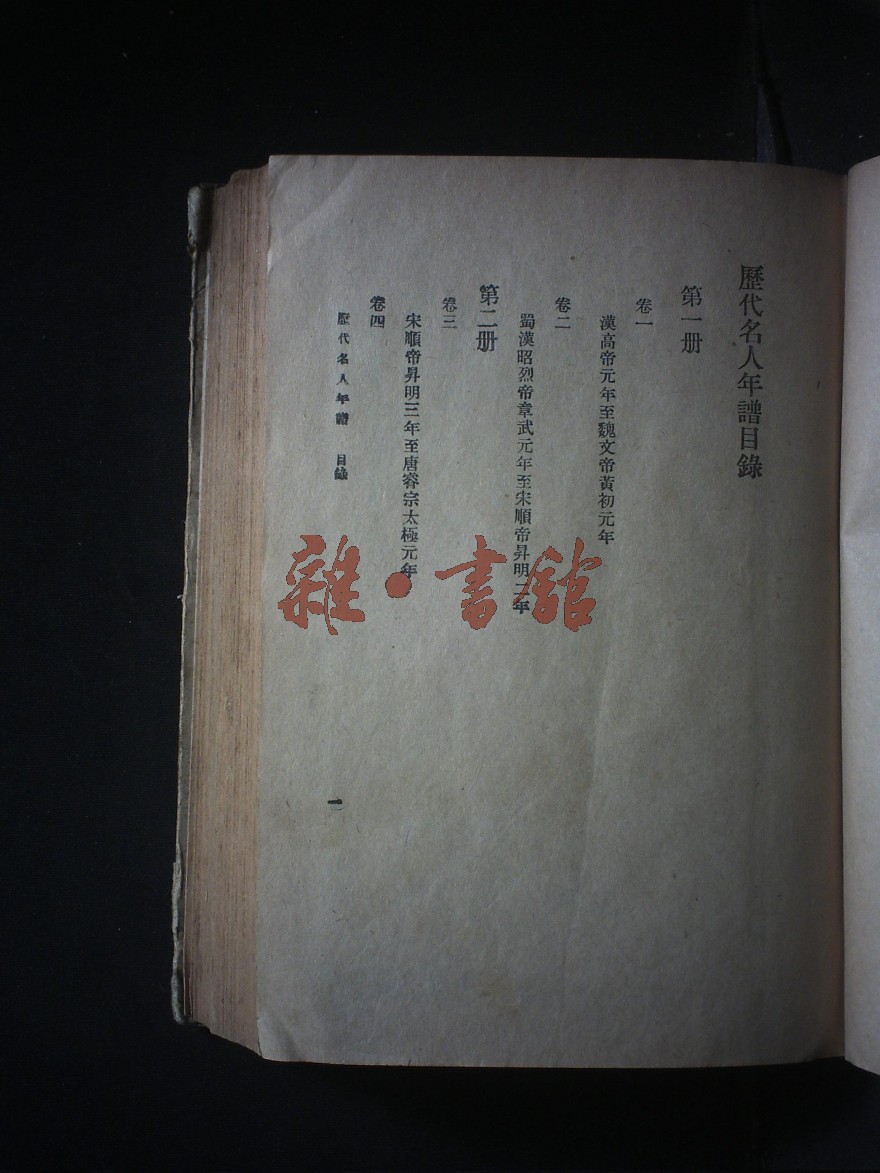 歷代名人年譜目錄
第一册
卷一
漢高帝元年至魏文帝黃初元年
卷二
蜀漢昭烈帝章武元年至宋順帝昇明二年
第二册
卷三
宋順帝昇明三年至唐睿宗太極元年
卷四
歷代名人年譜 目錄
一
雜·書館